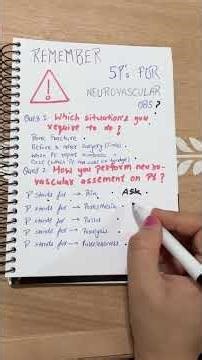 REMEMBER
5P's FOR
NEUROVASCULAR
OBS?
Ques 1: Which situation's you
require to do?
Bone fracture
Before & after surgery
When Pt report numbness
Ques 2: How you perform neuro-
vascular assesment on Pt?
P stands for → Pain Ask
P stands for → Paresthesia
P stands for → Pulse
P stands for → Paralysis
P stands for →